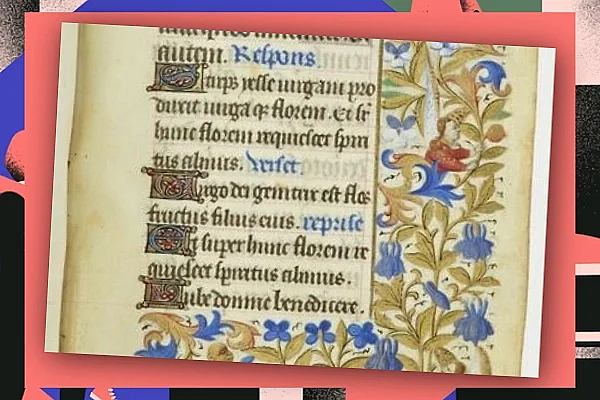 autem. Respons
Stirps yesse uirgam pro
duxit uirga q florem. Et sr
hunc florem requiescet spiri
tus almus. Verset
Uirgo dei genitrix est flos
fructus filius eius. reprise
Et super hunc florem re
quiescet spiritus almus.
Iube domne benedicere.